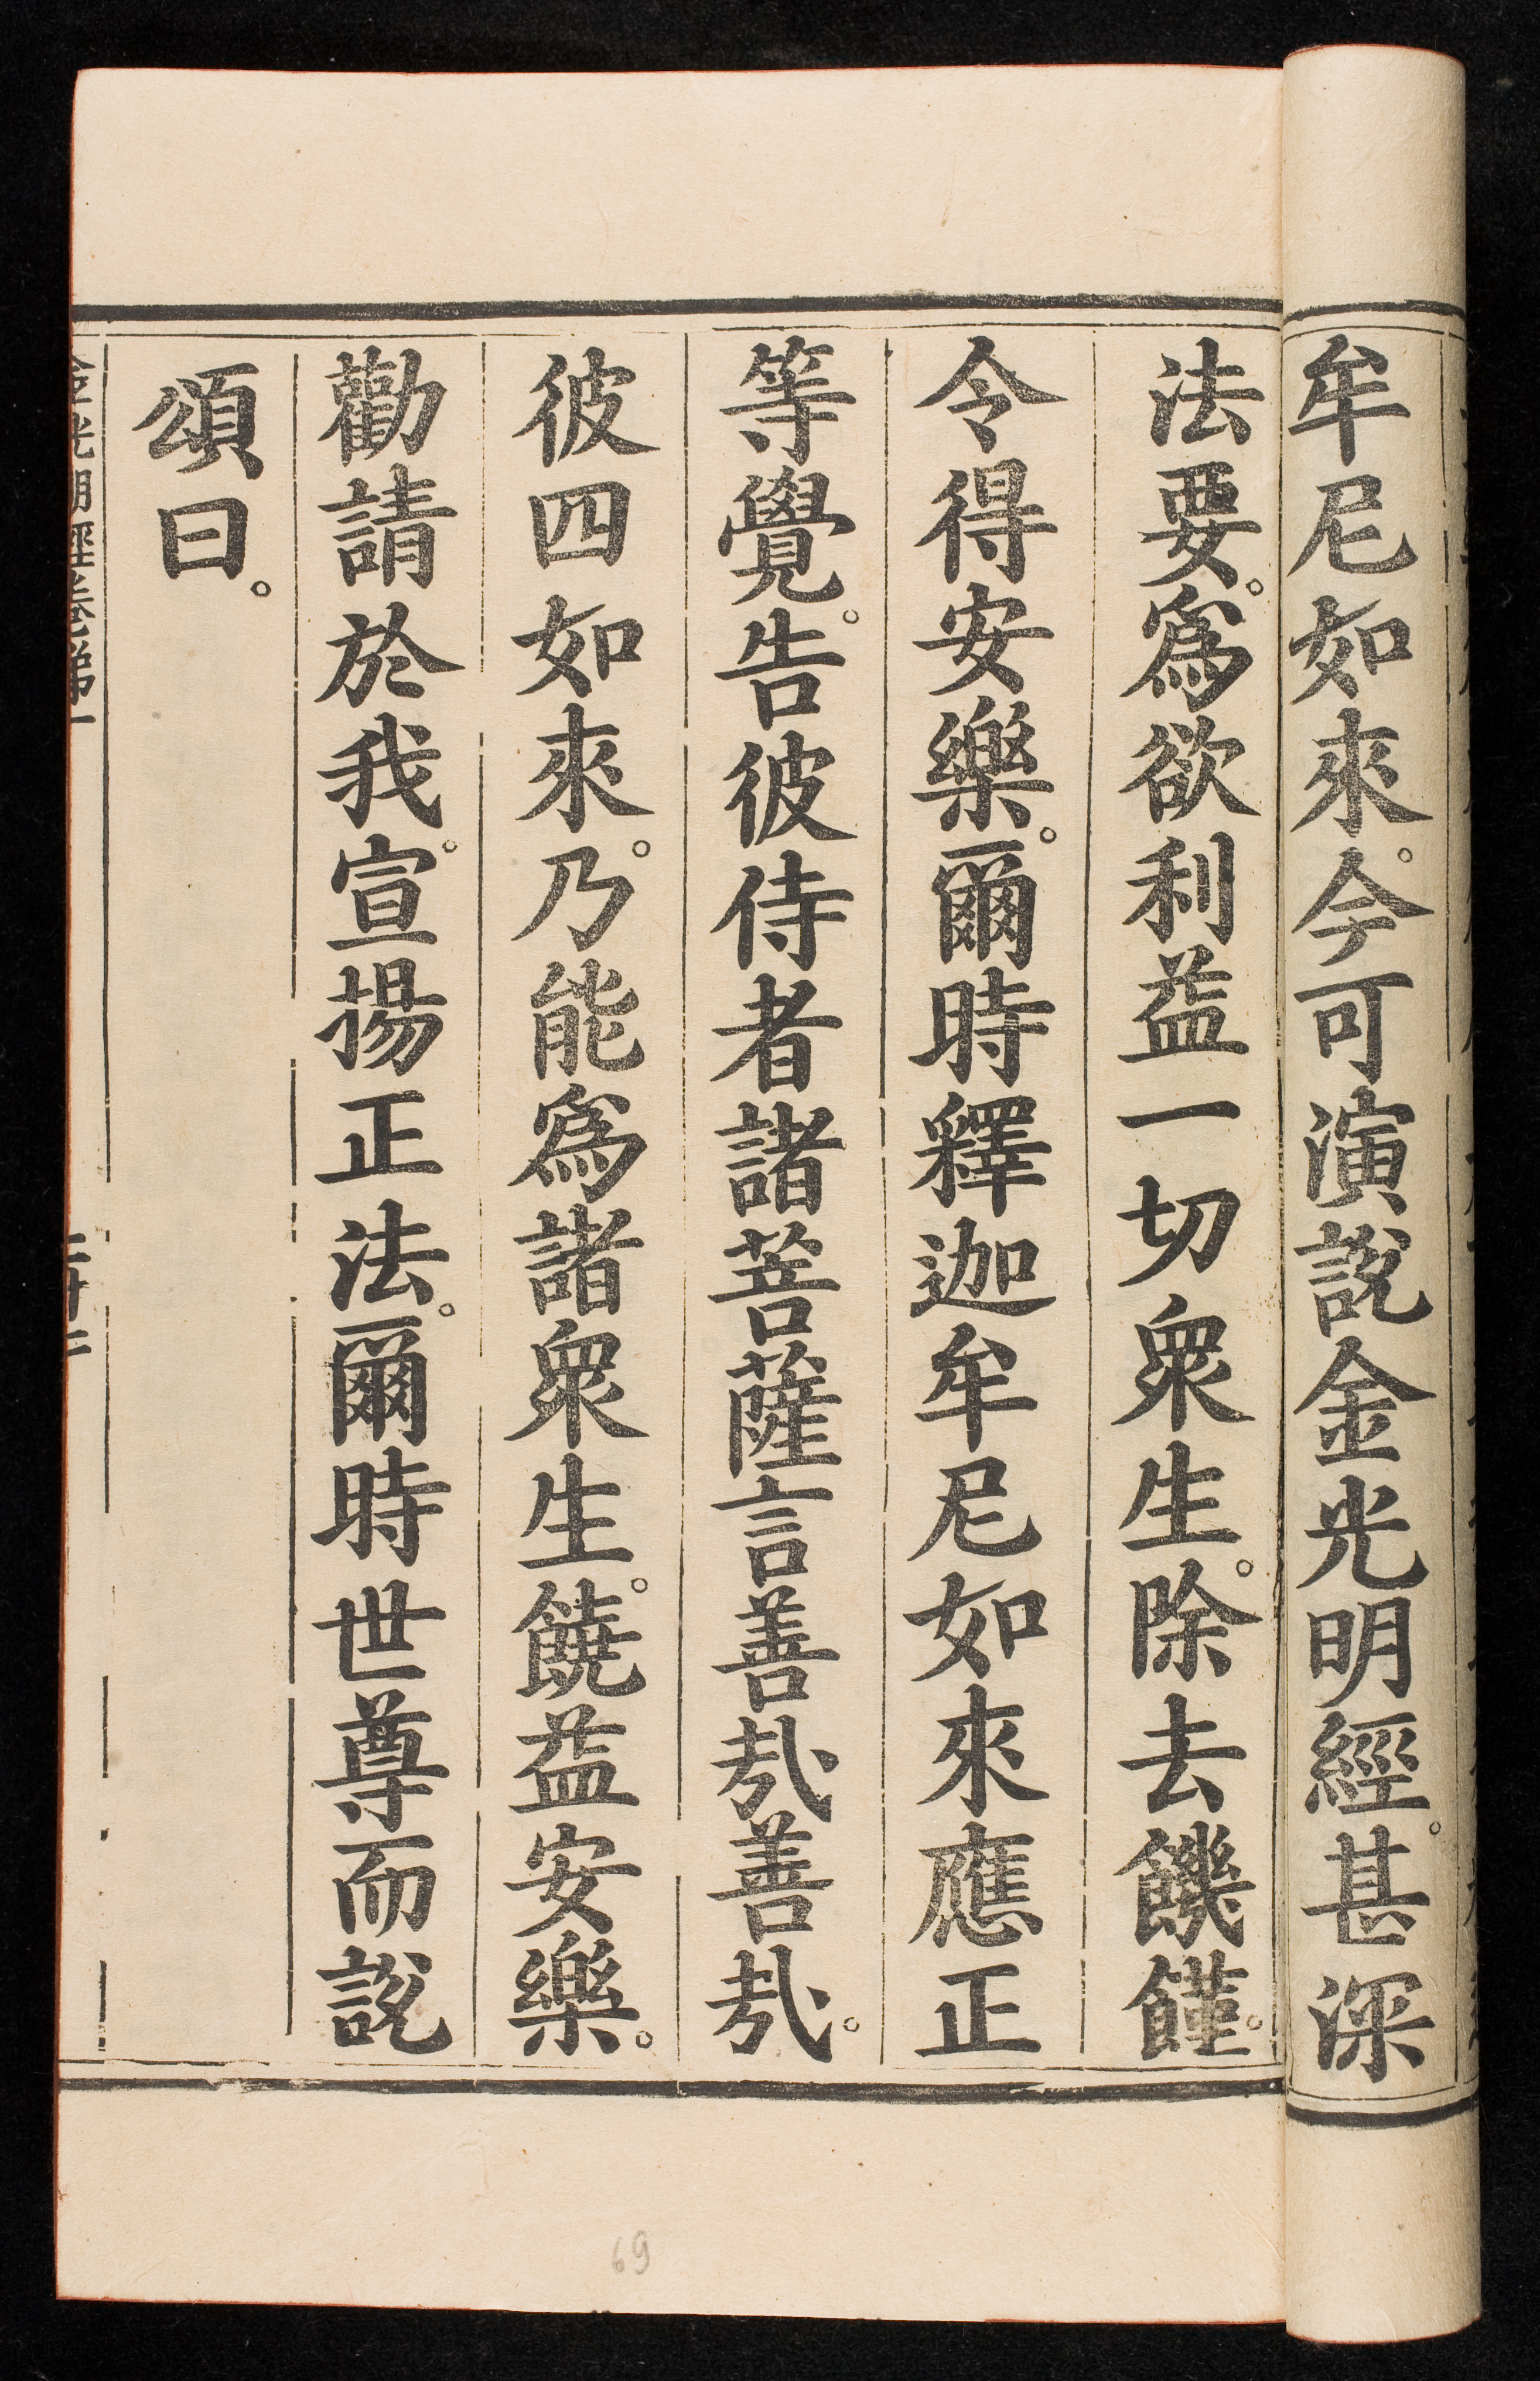 牟尼如來。今可演說金光明經。甚深
法要。爲欲利益一切衆生。除去饑饉。
令得安樂。爾時釋迦牟尼如來應正
等覺。告彼侍者諸菩薩言善哉善哉。
彼四如來。乃能爲諸衆生。饒益安樂。
勸請於我。宣揚正法。爾時世尊而說
頌曰。
金光明經卷第一
69